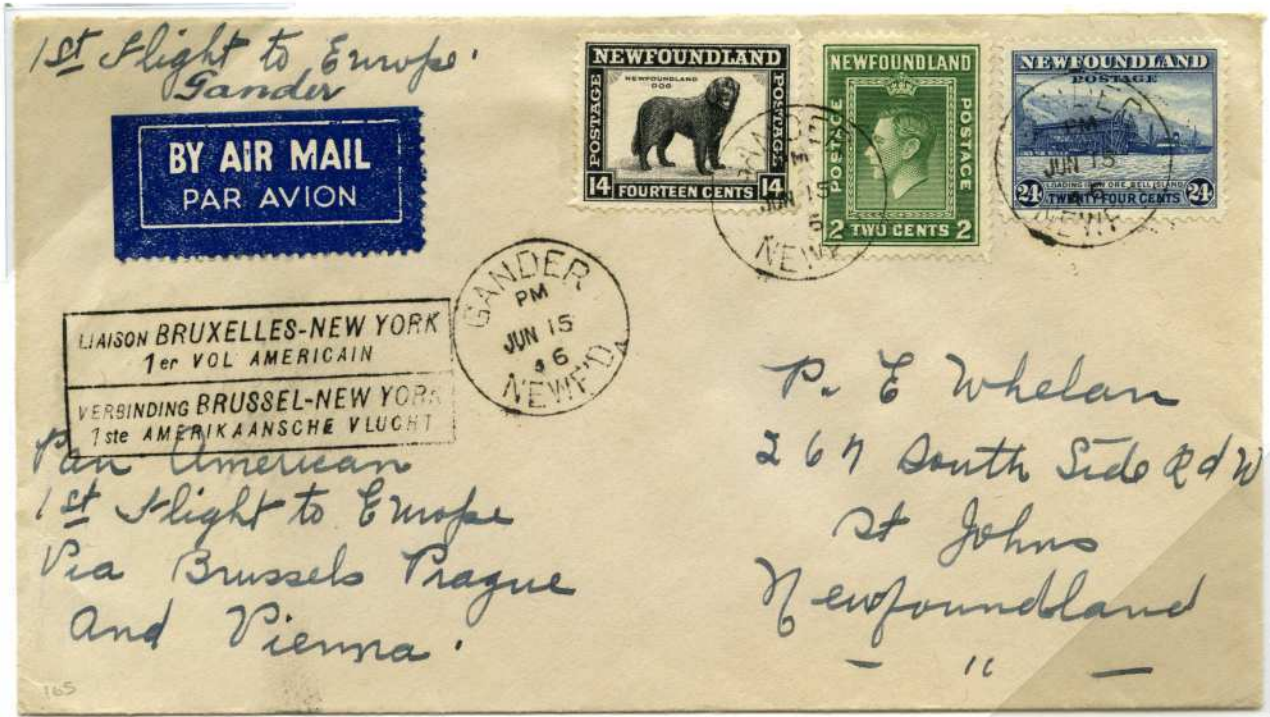 1st Flight to Europe.
Gander
BY AIR MAIL
PAR AVION
NEWFOUNDLAND
NEWFOUNDLAND
DOG
POSTAGE
POSTAGE
14 FOURTEEN CENTS 14
NEWFOUNDLAND
POSTAGE
POSTAGE
2 TWO CENTS 2
NEWFOUNDLAND
POSTAGE
LOADING IRON ORE, BELL ISLAND
24 TWENTY FOUR CENTS 24
GANDER
JUN 15
NEWF
GANDER
PM
JUN 15
NEWF
GANDER
PM
JUN 15
46
NEWF'D
LIAISON BRUXELLES-NEW YORK
1er VOL AMERICAIN
VERBINDING BRUSSEL-NEW YORK
1ste AMERIKAANSCHE VLUCHT
Pan American
1st Flight to Europe
Via Brussels Prague
And Vienna.
P. E Whelan
267 South Side Rd W
St Johns
Newfoundland
— " —
165